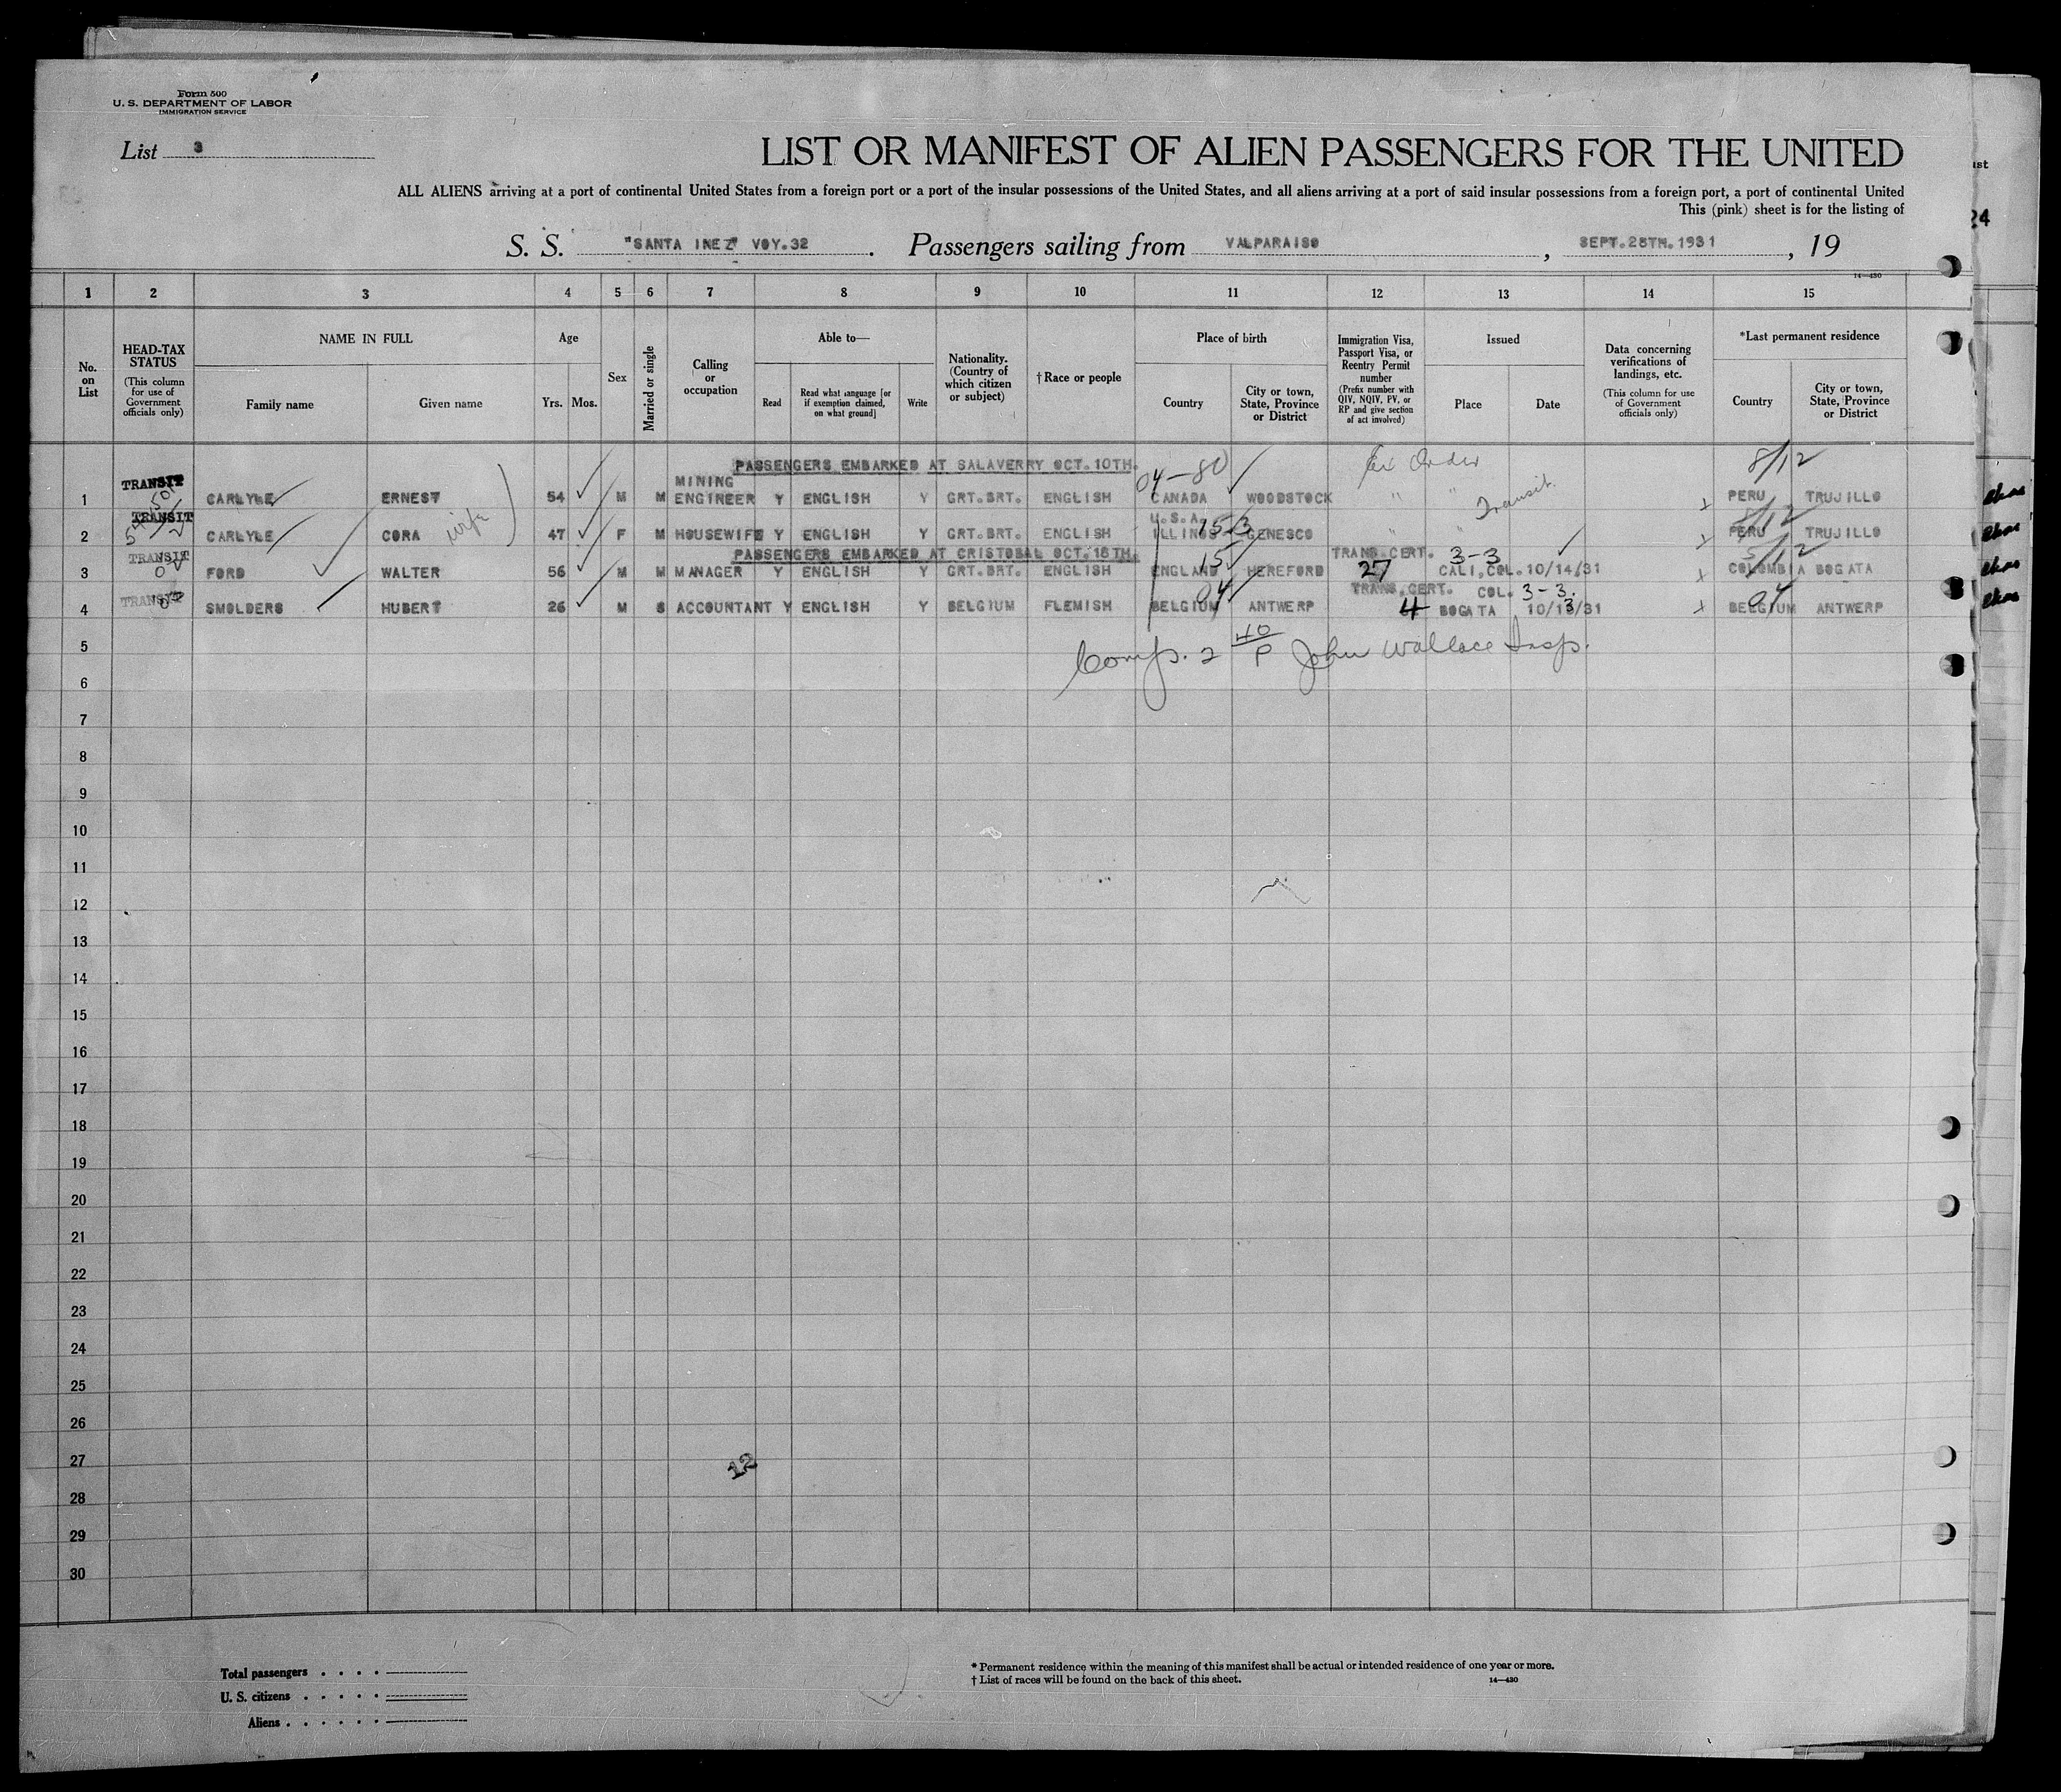 Form 500
U. S. DEPARTMENT OF LABOR
IMMIGRATION SERVICE
List 3
LIST OR MANIFEST OF ALIEN PASSENGERS FOR THE UNITED
ALL ALIENS arriving at a port of continental United States from a foreign port or a port of the insular possessions of the United States, and all aliens arriving at a port of said insular possessions from a foreign port, a port of continental United
This (pink) sheet is for the listing of
S. S. "SANTA INEZ" VOY.32 . Passengers sailing from VALPARAISO , SEPT.25TH.1931 , 19
14—430
1 2 3 4 5 6 7 8 9 10 11 12 13 14 15
No. on List
HEAD-TAX STATUS (This column for use of Government officials only)
NAME IN FULL
Family name Given name
Age
Yrs. Mos.
Sex
Married or single
Calling or occupation
Able to—
Read Read what language [or if exemption claimed, on what ground] Write
Nationality. (Country of which citizen or subject)
† Race or people
Place of birth
Country City or town, State, Province or District
Immigration Visa, Passport Visa, or Reentry Permit number (Prefix number with QIV, NQIV, PV, or RP and give section of act involved)
Issued
Place Date
Data concerning verifications of landings, etc. (This column for use of Government officials only)
*Last permanent residence
Country City or town, State, Province or District
PASSENGERS EMBARKED AT SALAVERRY OCT.10TH.
04-80 Order 8/12
TRANSIT MINING
1 CARLYLE ERNEST 54 M M ENGINEER Y ENGLISH Y GRT.BRT. ENGLISH CANADA WOODSTOCK " " Transit PERU TRUJILLO
TRANSIT wife U.S.A. 15-3
2 CARLYLE CORA 47 F M HOUSEWIFE Y ENGLISH Y GRT.BRT. ENGLISH ILLINOIS GENESCO " " PERU TRUJILLO
PASSENGERS EMBARKED AT CRISTOBAL OCT.18TH.
TRANSIT 15 TRANS.CERT. 3-3 5/12
3 FORD WALTER 56 M M MANAGER Y ENGLISH Y GRT.BRT. ENGLISH ENGLAND HEREFORD 27 CALI,COL. 10/14/31 COLOMBIA BOGATA
TRANSIT 04 TRANS.CERT. COL. 3-3. 04
4 SMOLDERS HUBERT 26 M S ACCOUNTANT Y ENGLISH Y BELGIUM FLEMISH BELGIUM ANTWERP 4 BOGATA 10/13/31 BELGIUM ANTWERP
5 Comp. 2 40/P John Wallace Insp.
6
7
8
9
10
11
12
13
14
15
16
17
18
19
20
21
22
23
24
25
26
27
12
28
29
30
Total passengers . . . .
U. S. citizens . . . . .
Aliens . . . . . .
* Permanent residence within the meaning of this manifest shall be actual or intended residence of one year or more.
† List of races will be found on the back of this sheet.
14—430
24